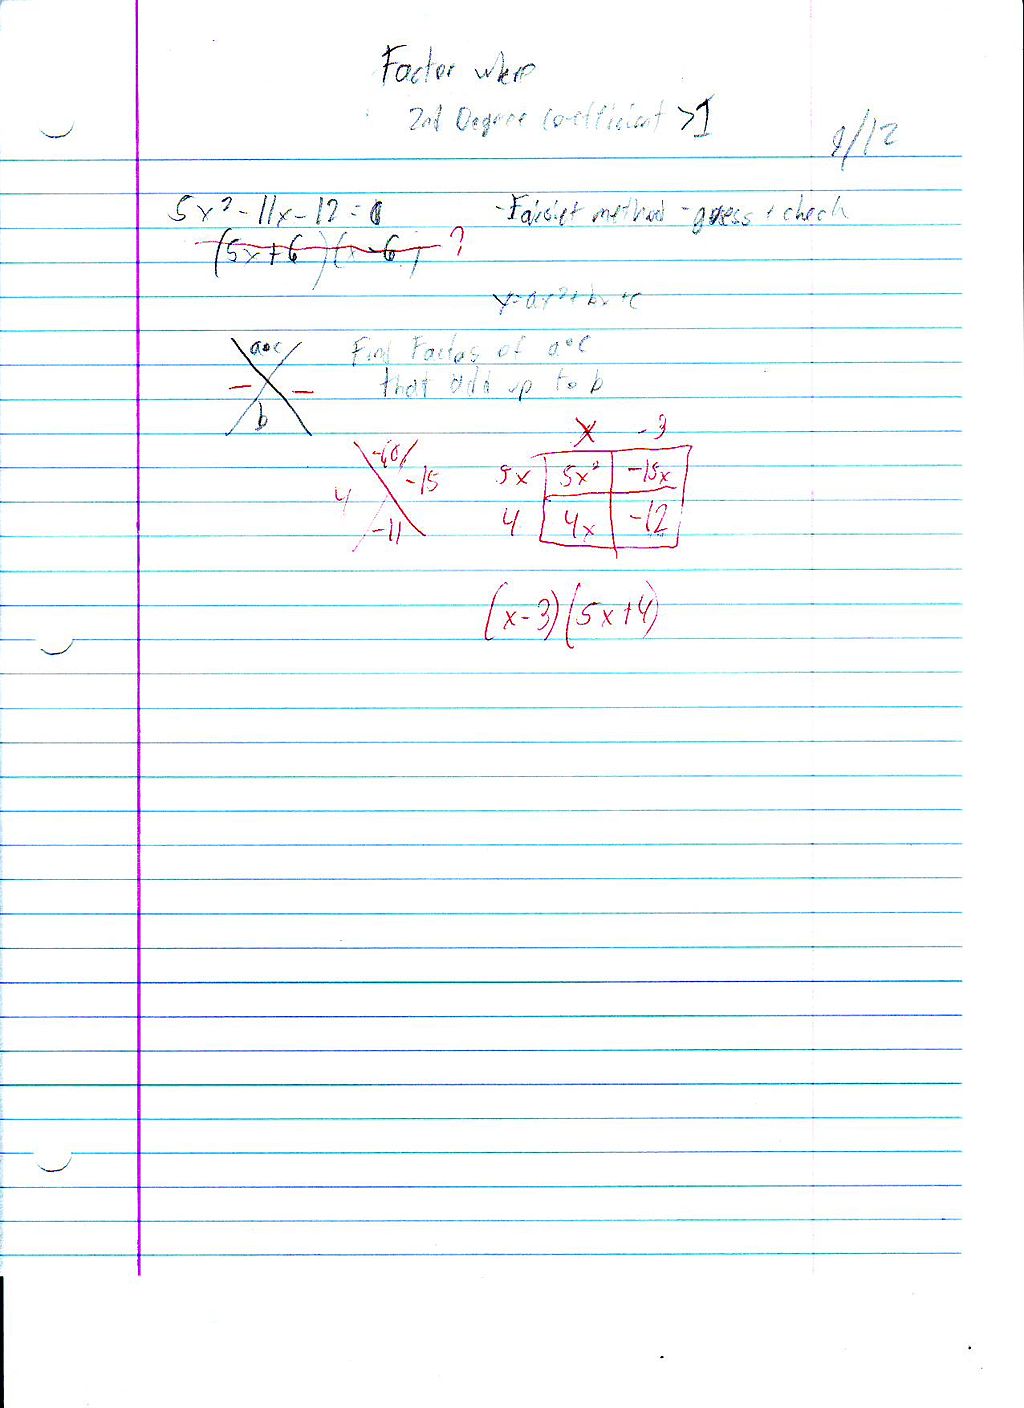 Factor when
2nd Degree coefficient >1
9/12
5x² - 11x - 12 = 0
- method - guess + check
(5x + 6)(x - 6) ?
y = ax² + bx + c
a•c
Find Factors of a•c
that add up to b
b
x -3
-60
4 -15
-11
5x 5x² -15x
4 4x -12
(x - 3)(5x + 4)